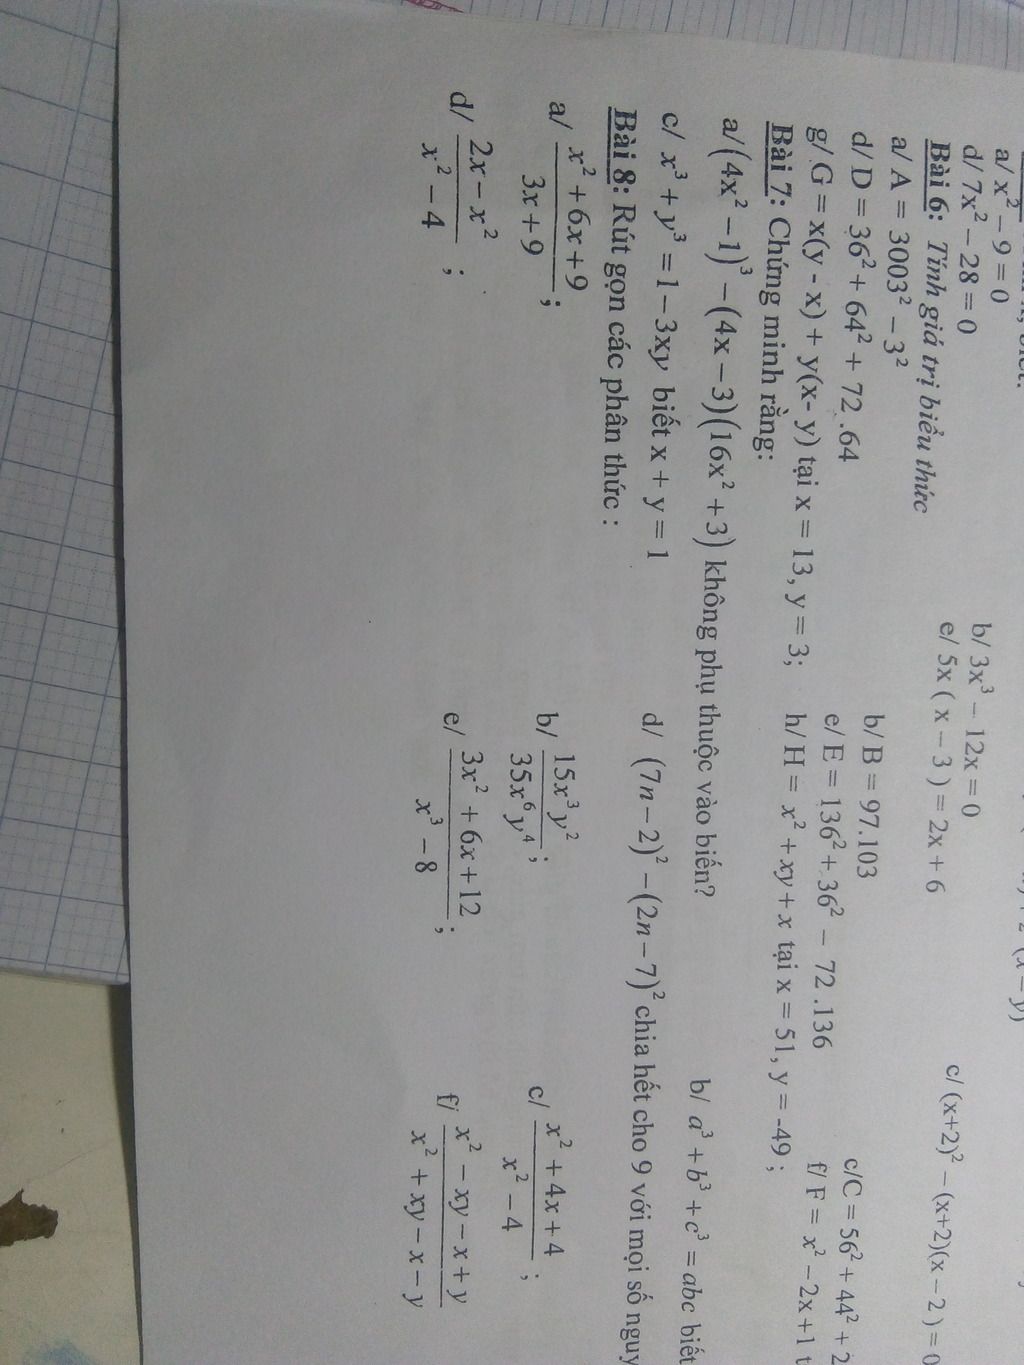 a/ x² – 9 = 0
b/ 3x³ – 12x = 0
c/ (x+2)² – (x+2)(x – 2) = 0
d/ 7x² – 28 = 0
e/ 5x ( x – 3 ) = 2x + 6
Bài 6: Tính giá trị biểu thức
a/ A = 3003² – 3²
b/ B = 97.103
c/C = 56² + 44² + 2
d/ D = 36² + 64² + 72 .64
e/ E = 136² + 36² – 72 .136
f/ F = x² – 2x + 1 t
g/ G = x(y - x) + y(x- y) tại x = 13, y = 3;
h/ H = x² + xy + x tại x = 51, y = -49 ;
Bài 7: Chứng minh rằng:
a/ (4x² – 1)³ – (4x – 3)(16x² + 3) không phụ thuộc vào biến?
b/ a³ + b³ + c³ = abc biết
c/ x³ + y³ = 1 – 3xy biết x + y = 1
d/ (7n – 2)² – (2n – 7)² chia hết cho 9 với mọi số nguy
Bài 8: Rút gọn các phân thức :
a/ (x² + 6x + 9)/(3x + 9) ;
b/ 15x³y²/35x⁶y⁴ ;
c/ (x² + 4x + 4)/(x² – 4) ;
d/ (2x – x²)/(x² – 4) ;
e/ (3x² + 6x + 12)/(x³ – 8) ;
f/ (x² – xy – x + y)/(x² + xy – x – y)